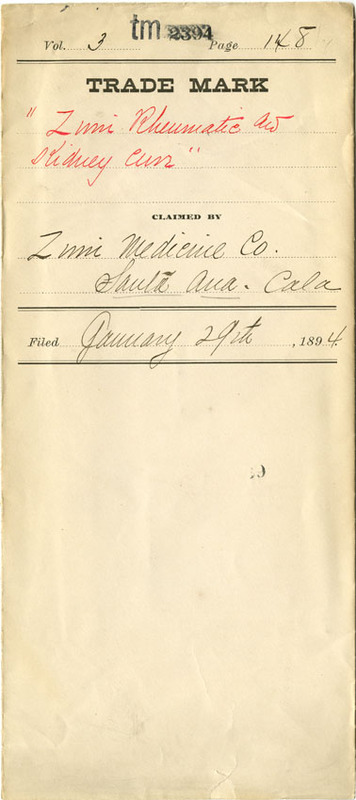 tm 2394
Vol. 3 Page 148
TRADE MARK
"Zuni Rheumatic and
Kidney Cure"
CLAIMED BY
Zuni Medicine Co.
Santa Ana. Cala
Filed January 29th, 1894.